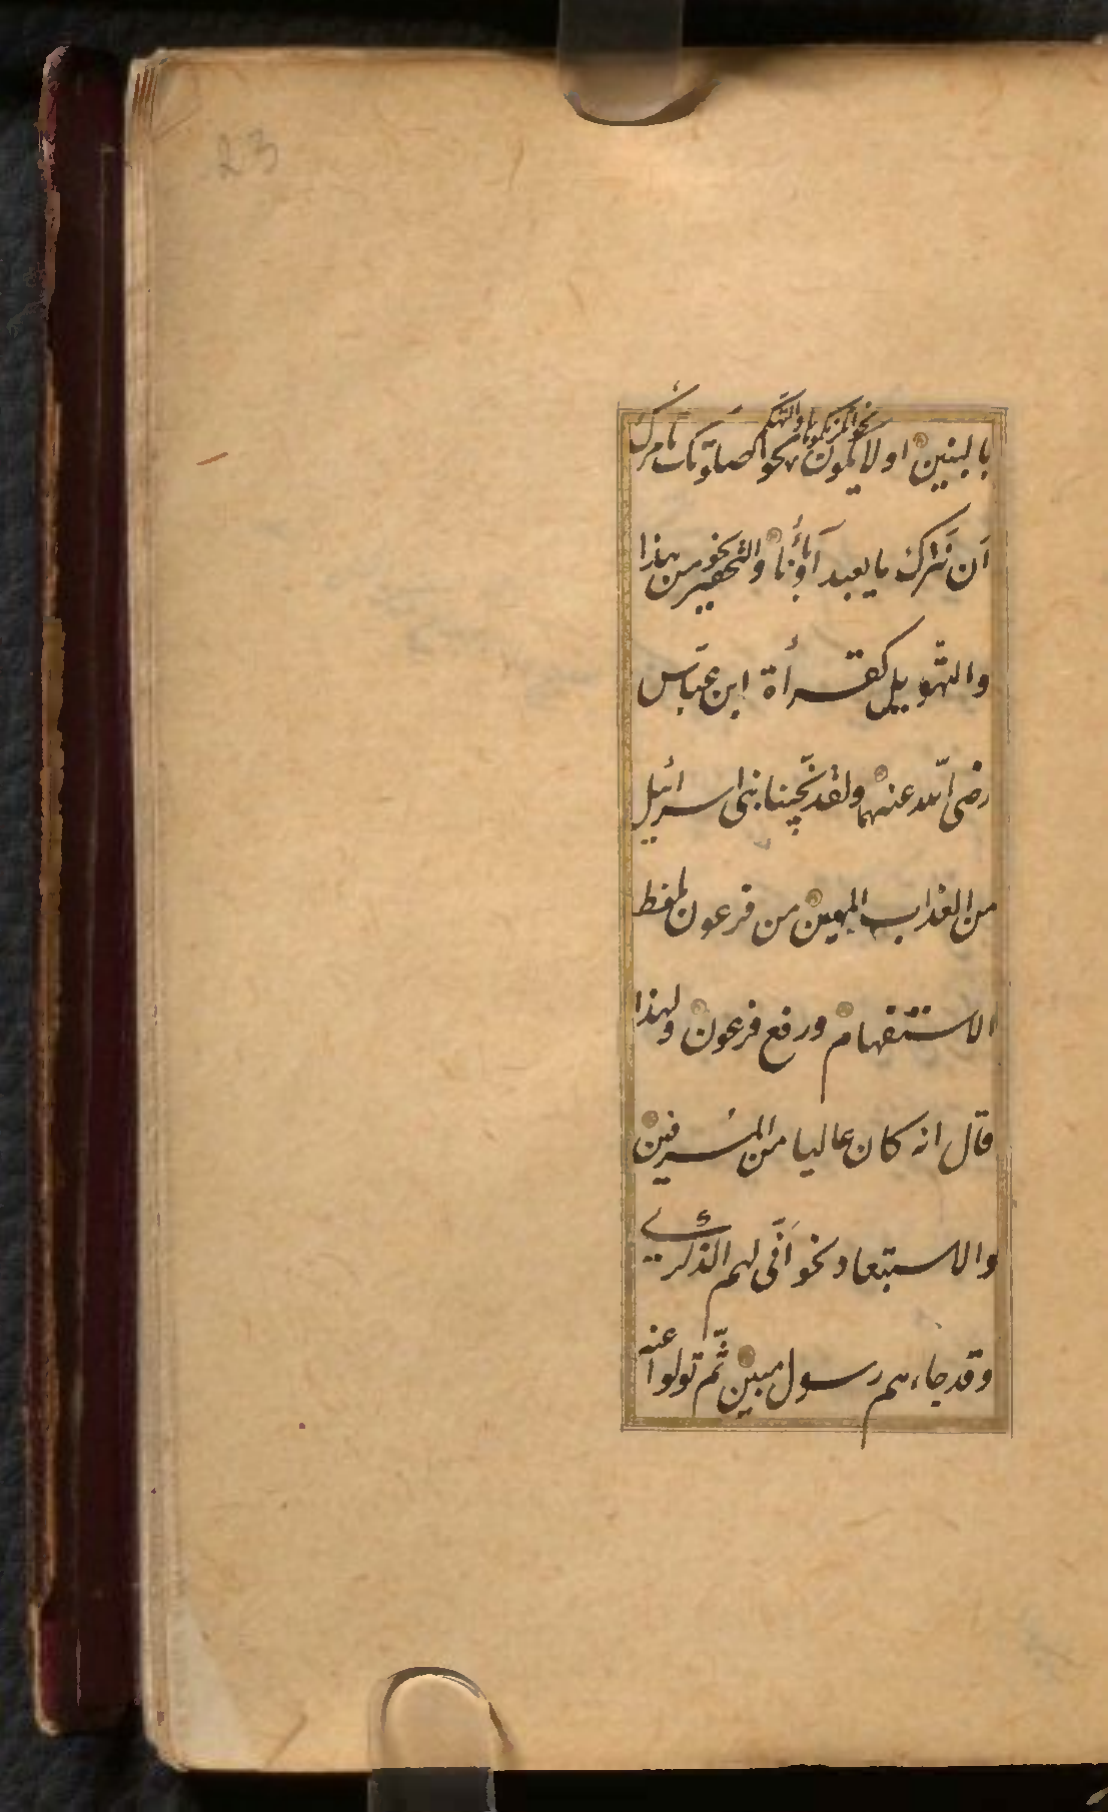 23
نحو انلزمكموها والتهكم
بالبنين او لا يكون نحو اصلوتك تأمرك
اَن نَترك ما يعبد آباؤُنا والتحقير نحو من هذا
والتهّويل كقرأة ابن عبّاس
رضى اللّه عنهما ولقد نَجّينا بنى اسرائيل
من العذاب المهين من فرعون بلفظ
الاستفهام ورفع فرعون ولهذا
قال انه كان عاليا من المسُرفين
والاستبعاد نحو اَنّى لهم الذكرى
وقد جاءهم رسول مبين ثمّ تولّوا عنه